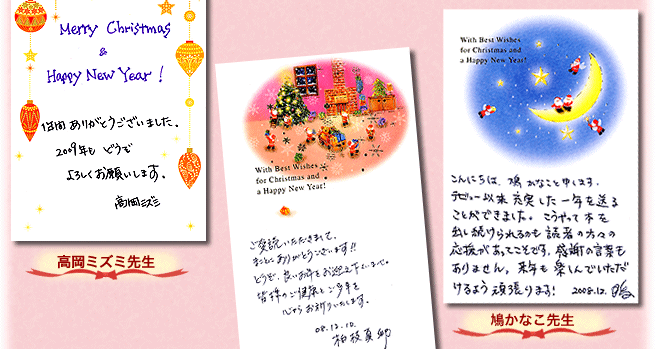 Merry Christmas
&
Happy New Year!
1年間ありがとうございました。
2009年も どうぞ
よろしくお願いします。
高岡ミズミ
高岡ミズミ先生
With Best Wishes
for Christmas and
a Happy New Year!
ご愛読いただきまして、
まことにありがとうございます!!
どうぞ、良いお年をお迎え下さいませ。
皆様のご健康とご多幸を
心からお祈りいたします。
08.12.10.
柏枝真郷
With Best Wishes
for Christmas and
a Happy New Year!
こんにちは、鳩かなこと申します。
デビュー以来充実した一年を送る
ことができました。こうやって本を
出し続けられるのも読者の方々の
応援があってこそです。感謝の言葉も
ありません。来年も楽しんでいただ
けるよう頑張ります! 2008.12.
鳩かなこ先生